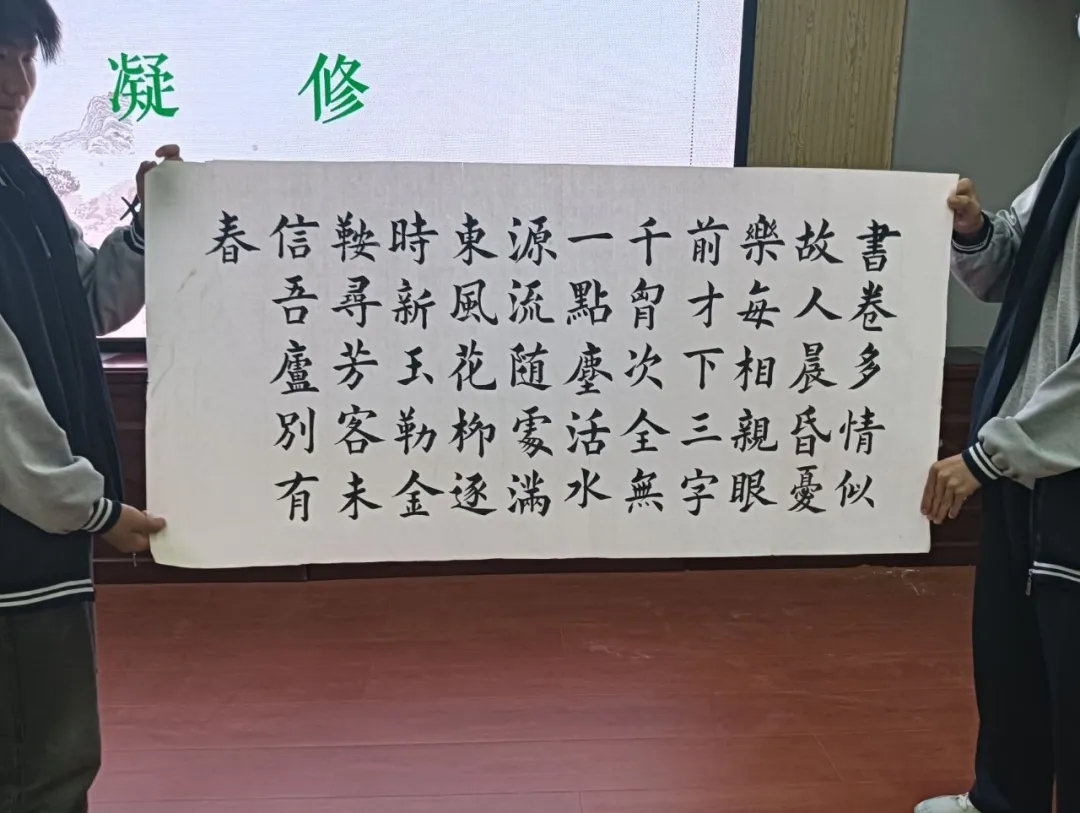 凝 修
書卷多情似
故人晨昏憂
樂每相親眼
前才下三字
千胷次全無
一點塵活水
源流随處滿
東風花柳逐
時新玉勒金
鞍尋芳客未
信吾廬別有
春